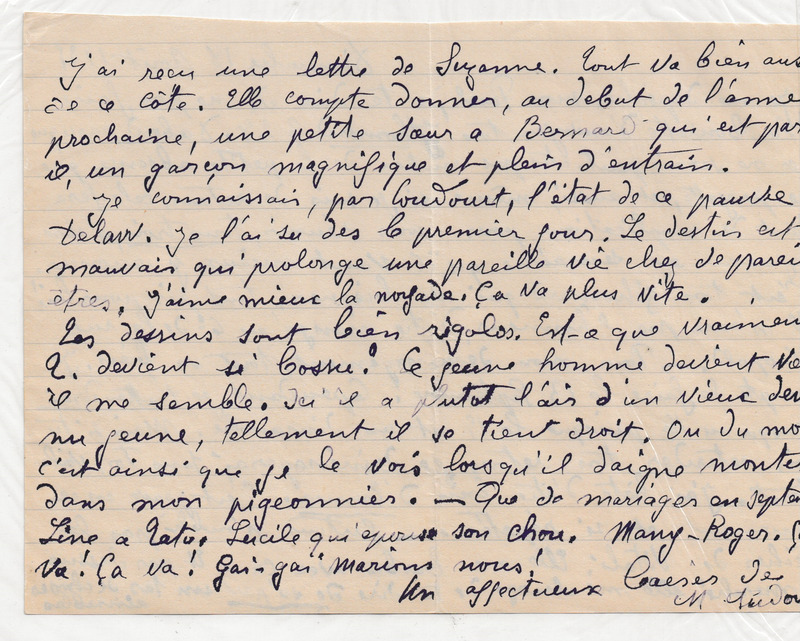 J'ai reçu une lettre de Suzanne. Tout va bien aus
de ce côté. Elle compte donner, au debut de l'anne
prochaine, une petite sœur a Bernard qui est par
il, un garçon magnifique et plein d'entrain.
Je connaissais, par Coudourt, l'état de ce pauvre
Delaw. Je l'ai su des le premier jour. Le destin est
mauvais qui prolonge une pareille vie chez de parei
êtres. J'aime mieux la noyade. Ça va plus vite.
Tes dessins sont bien rigolos. Est-ce que vraimen
T. devient si bossu? Ce jeune homme devient vie
il me semble. Ici il a plutot l'air d'un vieux deve
nu jeune, tellement il se tient droit. Ou du mo
c'est ainsi que je le vois lorsqu'il daigne monte
dans mon pigeonnier. — Que de mariages en septe
Line a Tato. Lucile qui epouse son chou. Many-Roger. Ç
va! Ça va! Gai-gai marions nous!
Un affectueux baiser de
M